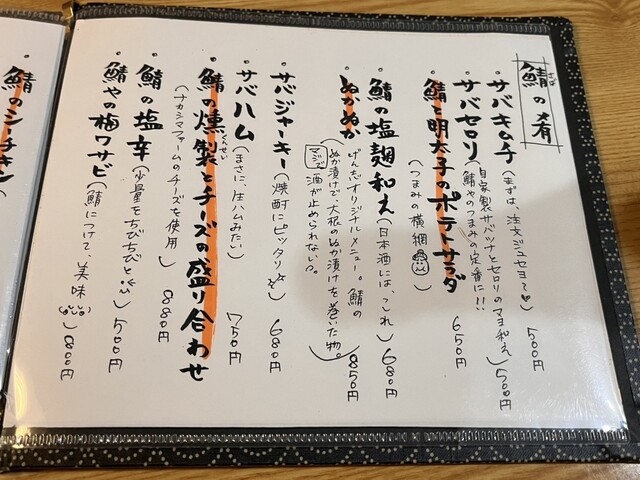 鯖の肴
さば
・サバキムチ(まずは、注文ジュセヨ～♡) 500円
・サバセロリ(自家製サバツナとセロリのマヨ和え
鯖やのつまみの定番に!!) 500円
・鯖と明太子のポテトサラダ
(つまみの横綱) 650円
・鯖の塩麹和え(日本酒には、これ) 680円
・ぬかぬか(げん志オリジナルメニュー。鯖の
ぬか漬けで、大根のぬか漬けを巻いた物。
マジで酒が止められない?。) 850円
・サバジャーキー(焼酎にピッタリ☆) 680円
・サバハム(まさに、生ハムみたい) 750円
・鯖の燻製とチーズの盛り合わせ
くんせい
(ナカシマファームのチーズを使用) 880円
・鯖の塩辛(少量をちびちびと) 500円
・鯖やの梅ワサビ(鯖につけて、美味) 800円
・鯖のシーチキン(